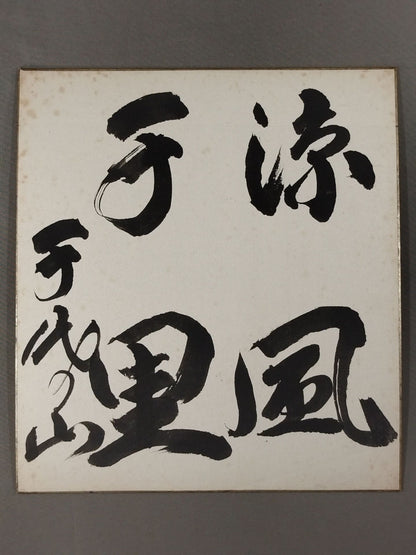 涼風
千里
千代の山